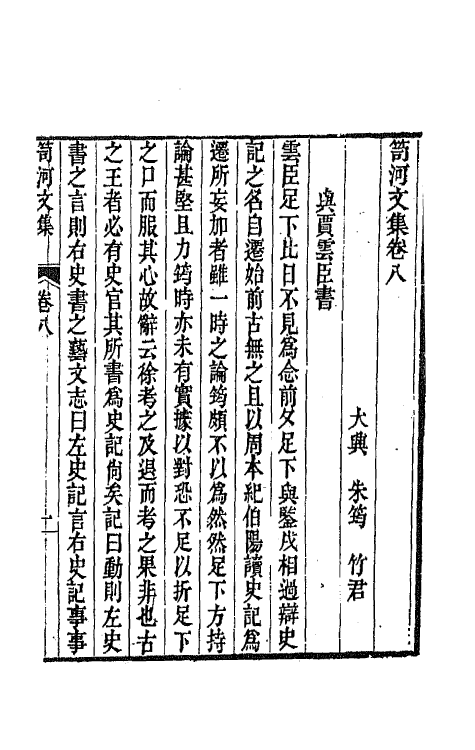 笥河文集卷八
大興　朱筠　竹君
與賈雲臣書
雲臣足下比日不見爲念前夕足下與鑒戌相過辯史
記之名自遷始前古無之且以周本紀伯陽讀史記爲
遷所妄加者雖一時之論筠頗不以爲然然足下方持
論甚堅且力筠時亦未有實據以對恐不足以折足下
之口而服其心故辭云徐考之及退而考之果非也古
之王者必有史官其所書爲史記尙矣記曰動則左史
書之言則右史書之藝文志曰左史記言右史記事事
笥河文集　卷八　一